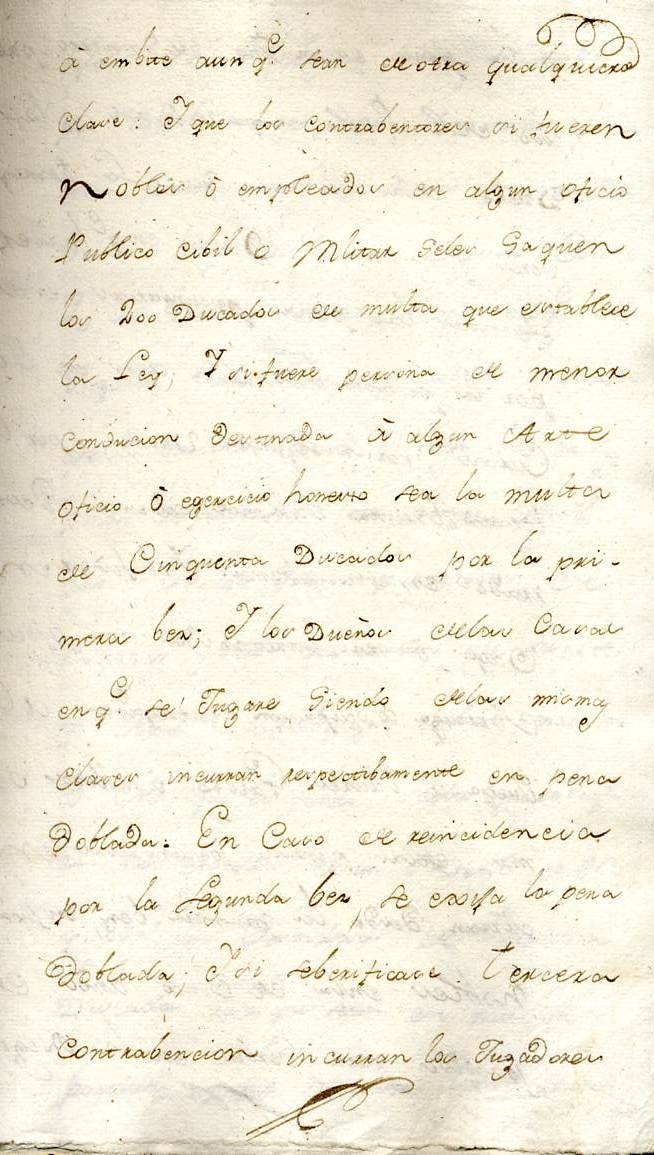 à embite aunq.e sean de otra qualquiera
Clase: Y que los contrabentores si fueren
Nobles ò empleados en algun oficio
Publico Cibil o Mlitar seles Saquen
los 200 Ducados de multa que establece
la Ley; Y si fuere persona de menor
Conducion destinada à algun Arte
oficio ò egercicio honesto sea la multa
de Cinquenta Ducados por la pri-
mera bez; Y los Dueños delas Casas
en q.e se Jugare Siendo delas mismas
Clases incurran respectibamente en pena
Doblada: En Caso de reincidencia
por la Segunda bez, se exija la pena
Doblada; Y si seberificase tercera
Contrabencion incurran los Jugadores